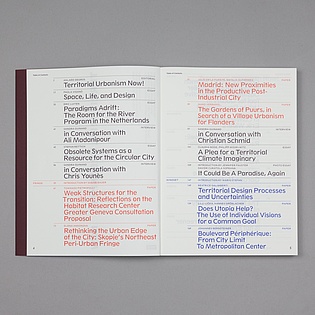 Territorial Urbanism Now!
Space, Life, and Design
Paradigms Adrift:
The Room for the River
Program in the Netherlands
in Conversation with
Ali Madanipour
Obsolete Systems as a
Resource for the Circular City
in Conversation with
Chris Younès
Weak Structures for the
Transition: Reflections on the
Habitat Research Center
Greater Geneva Consultation
Proposal
Rethinking the Urban Edge
of the City: Skopje's Northeast
Peri-Urban Fringe
Madrid: New Proximities
in the Productive Post-
Industrial City
The Gardens of Puurs, in
Search of a Village Urbanism
for Flanders
in Conversation with
Christian Schmid
A Plea for a Territorial
Climate Imaginary
It Could Be a Paradise, Again
Territorial Design Processes
and Uncertainties
Does Utopia Help?
The Use of Individual Visions
for a Common Goal
Boulevard Périphérique:
From City Limit
To Metropolitan Center